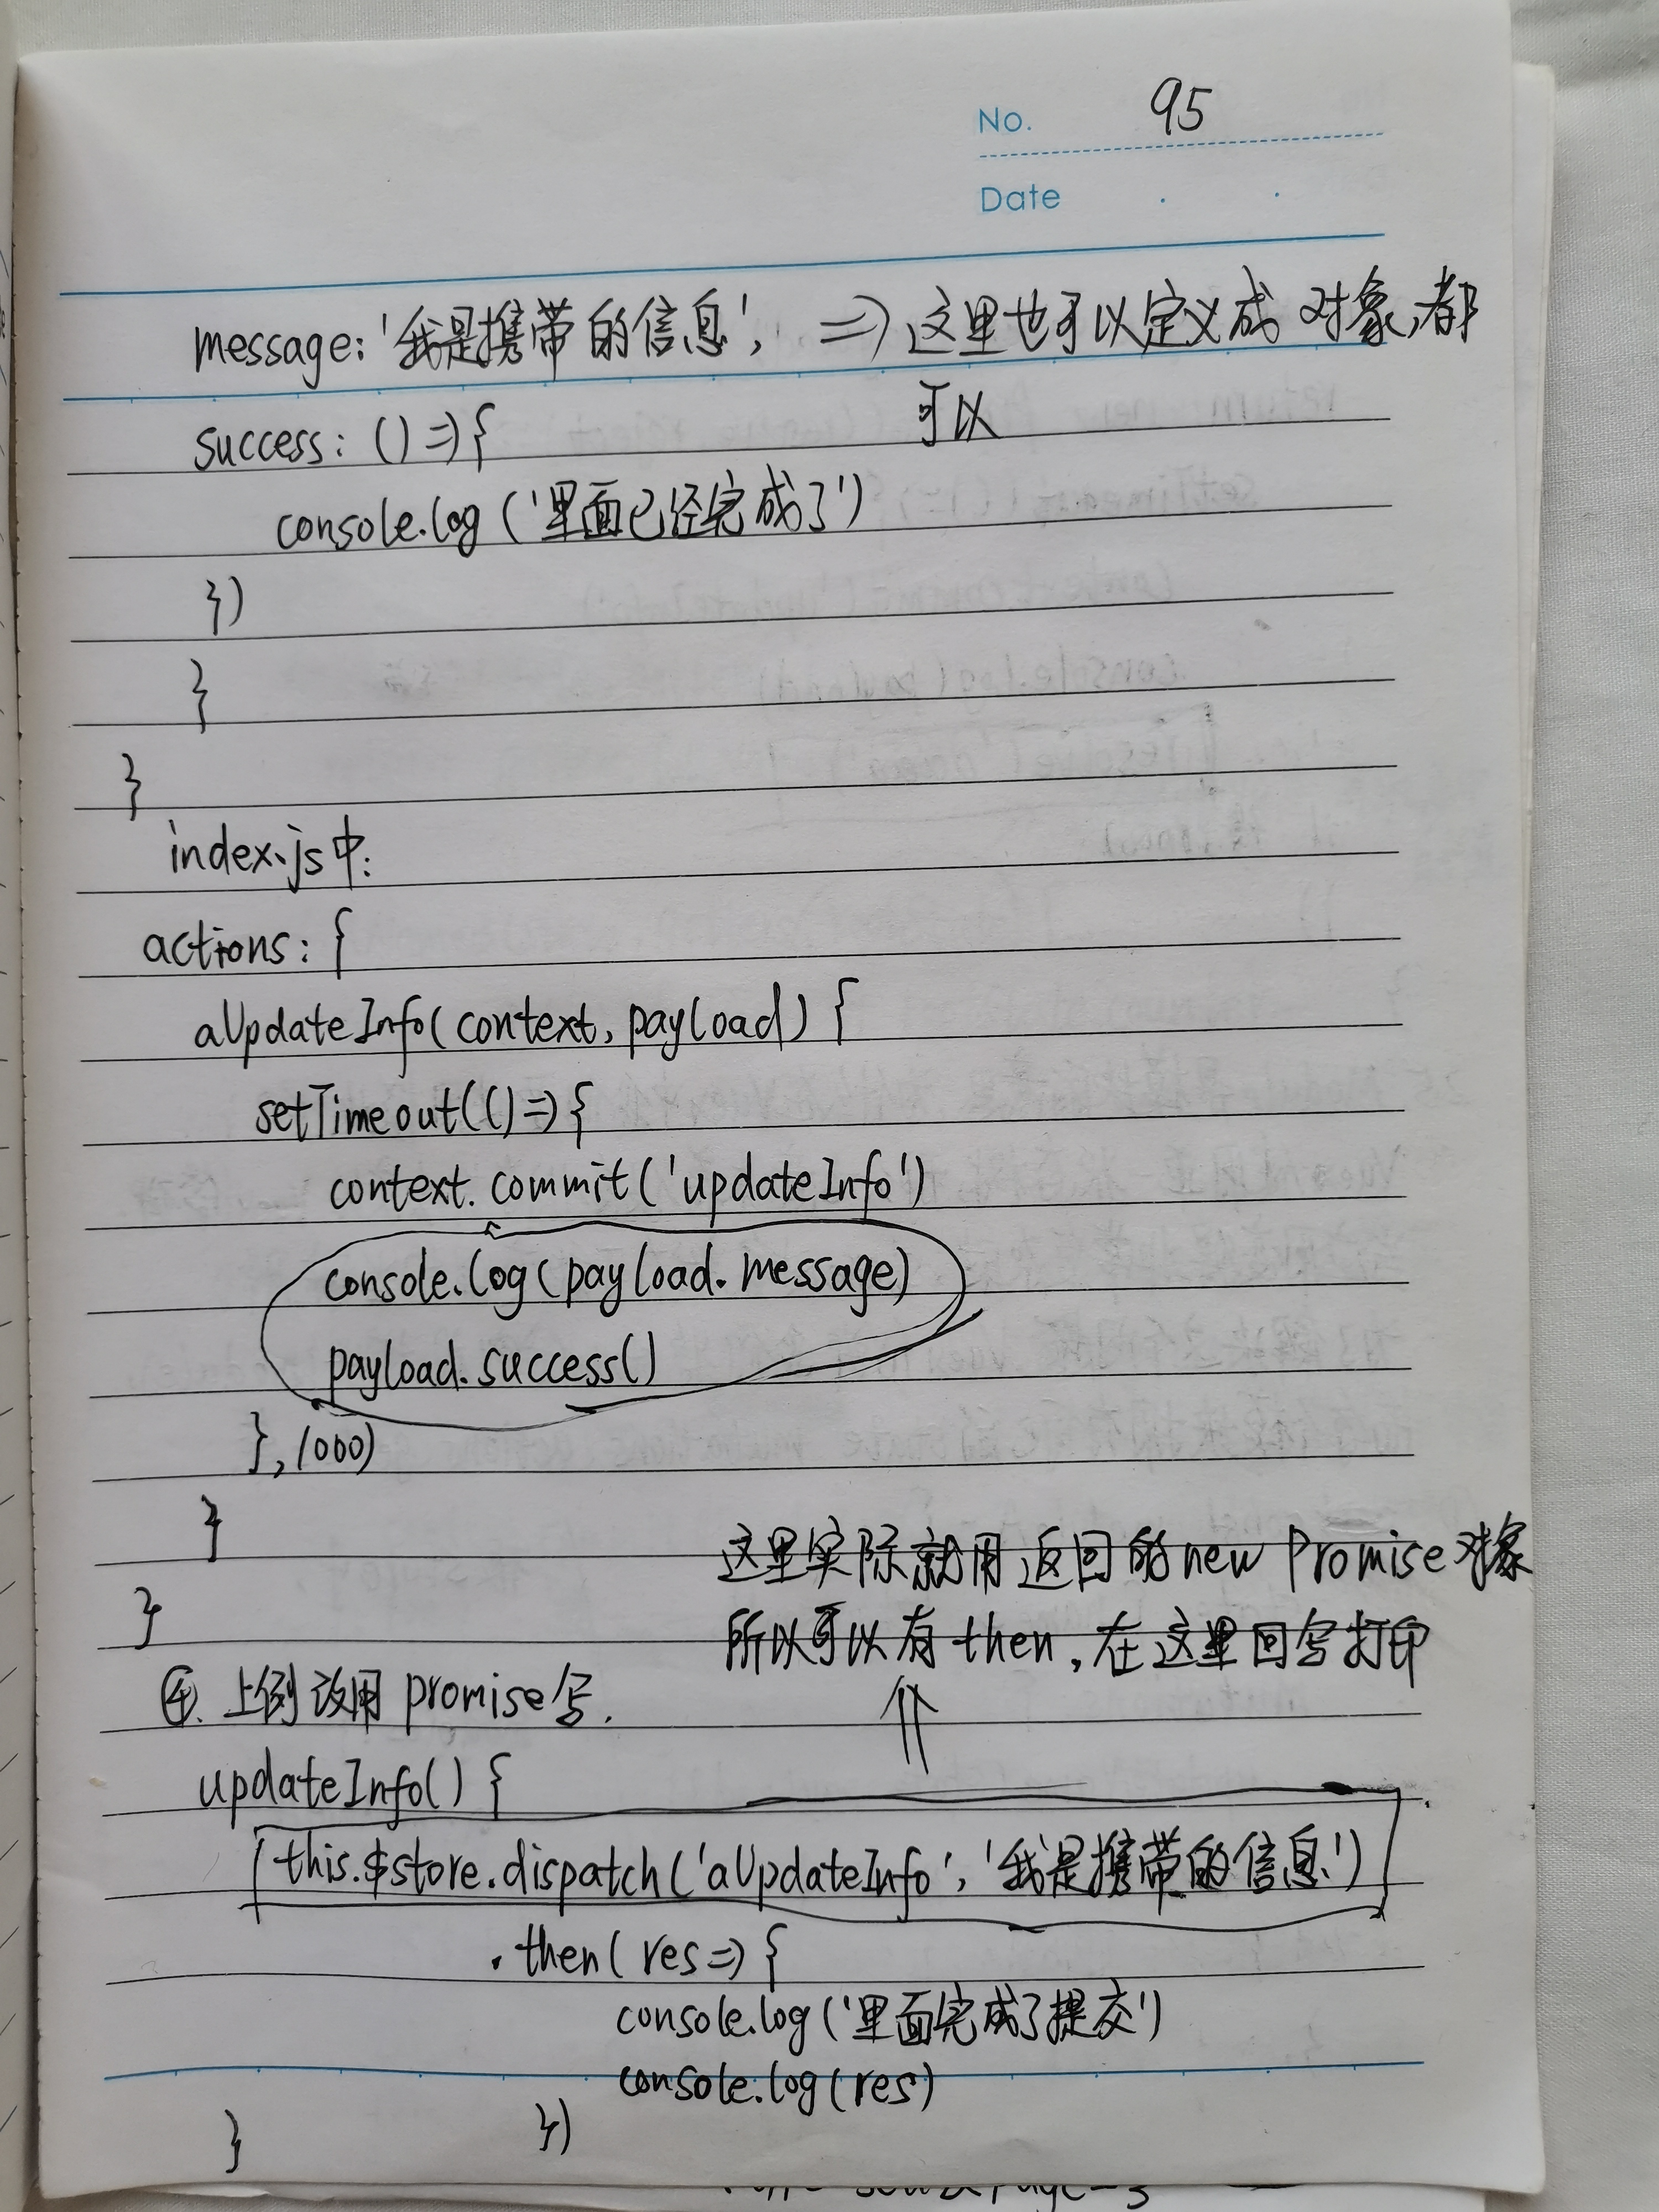 No. 95
Date
message: '我是携带的信息', => 这里也可以定义成 对象,都
可以
success: () => {
console.log('里面已经完成了')
})
}
}
index.js中:
actions: {
aUpdateInfo(context, payload) {
setTimeout(() => {
context.commit('updateInfo')
console.log(payload.message)
payload.success()
}, 1000)
}
这里实际就用返回的new Promise对象
}
所以可以有then,在这里回写打印
④. 上例改用promise写.
updateInfo() {
this.$store.dispatch('aUpdateInfo', '我是携带的信息')
.then(res => {
console.log('里面完成了提交')
console.log(res)
})
}